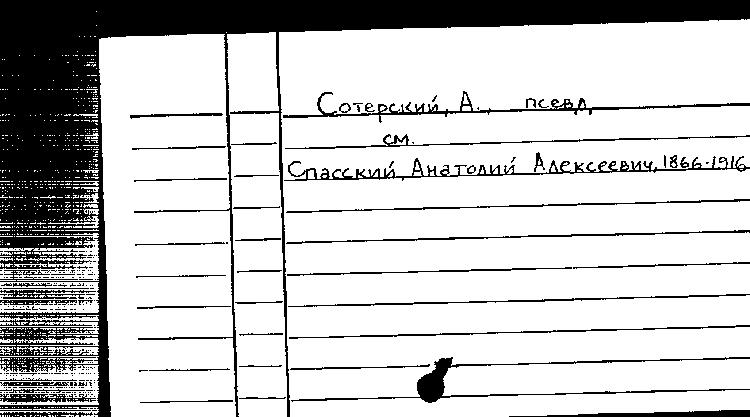 Сотерский, А., псевд.
см.
Спасский, Анатолий Алексеевич, 1866-1916